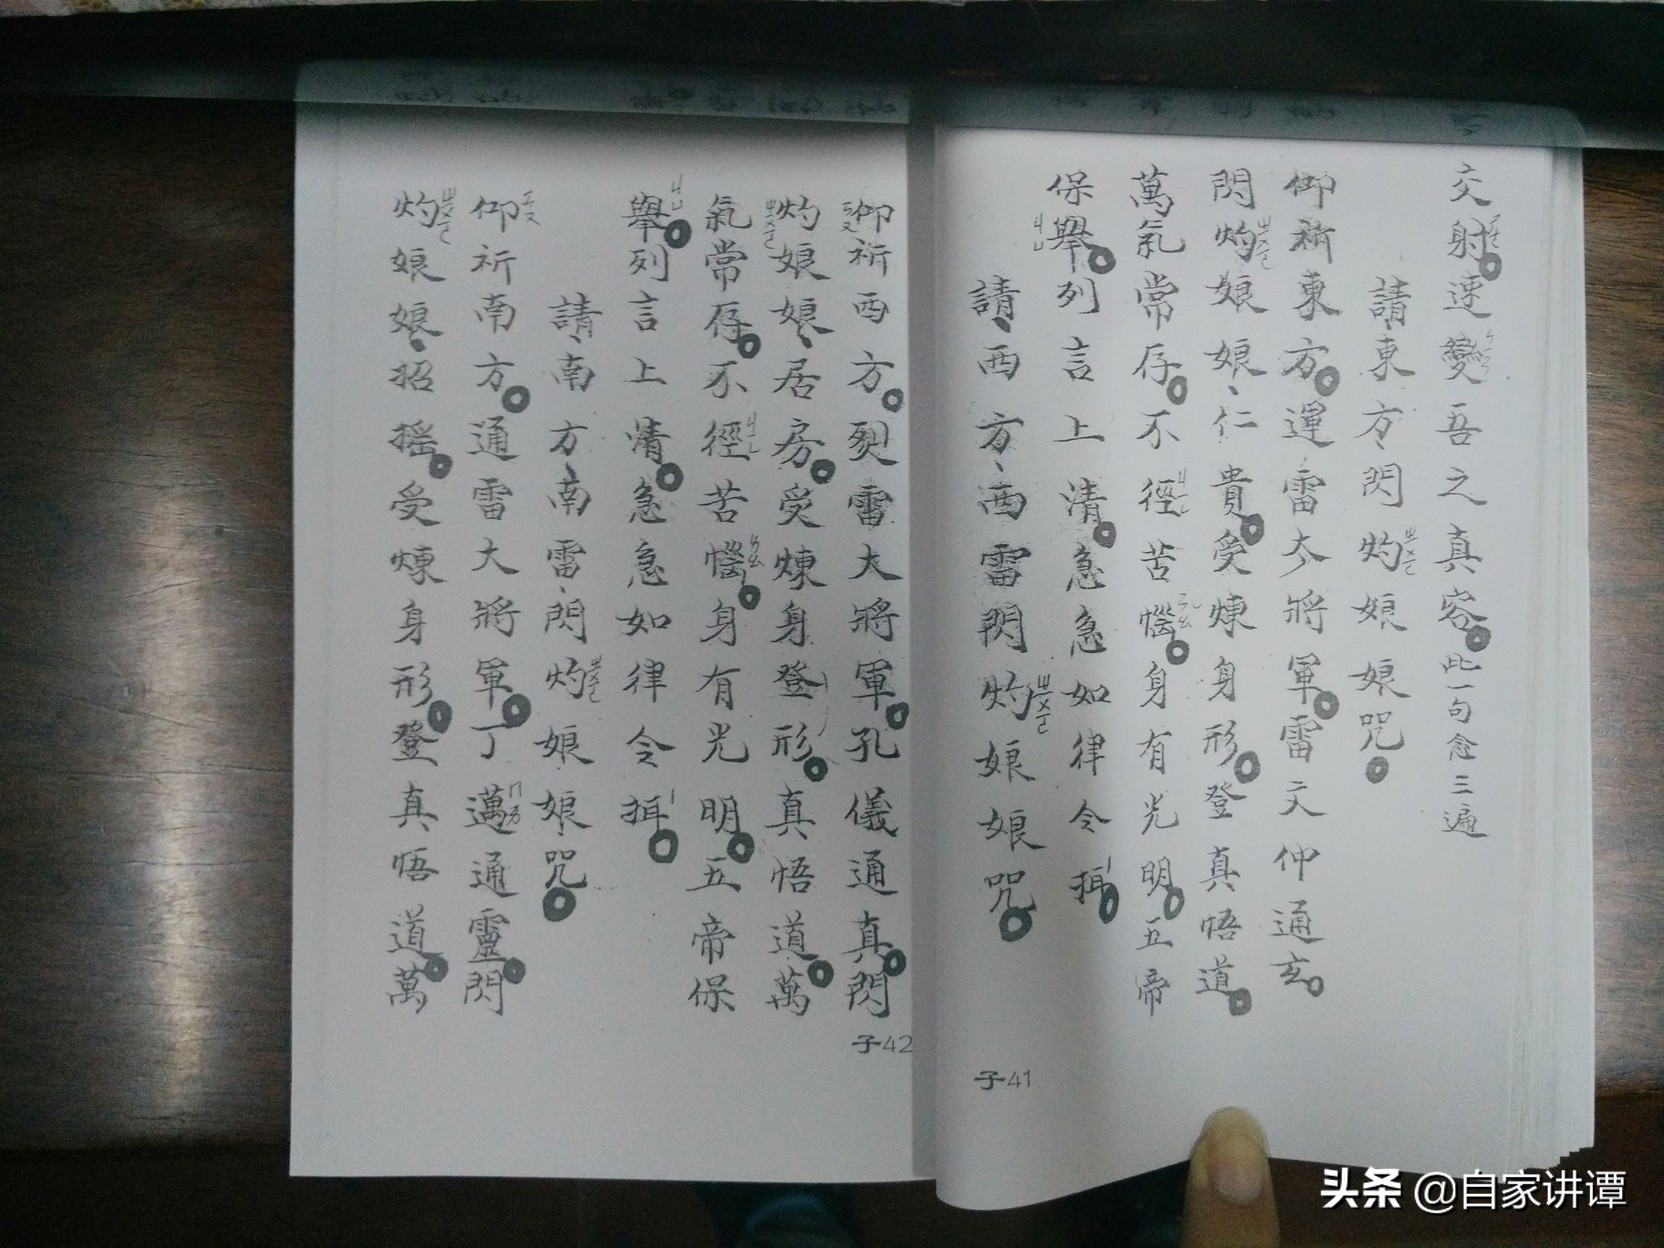 交射速變吾之真容此一句念三遍
請東方閃灼娘娘咒
仰祈東方運雷大將軍雷文仲通玄
閃灼娘娘仁貴受煉身形登真悟道
萬氣常存不徑苦惱身有光明五帝
保舉列言上清急急如律令揖
請西方西雷閃灼娘娘咒
子41
仰祈西方烈雷大將軍孔儀通真閃
灼娘娘居房受煉身登形真悟道萬
氣常存不徑苦惱身有光明五帝保
舉列言上清急急如律令揖
請南方南雷閃灼娘娘咒
仰祈南方通雷大將軍丁邁通靈閃
灼娘娘招摇受煉身形登真悟道萬
子42
头条 @自家讲谭